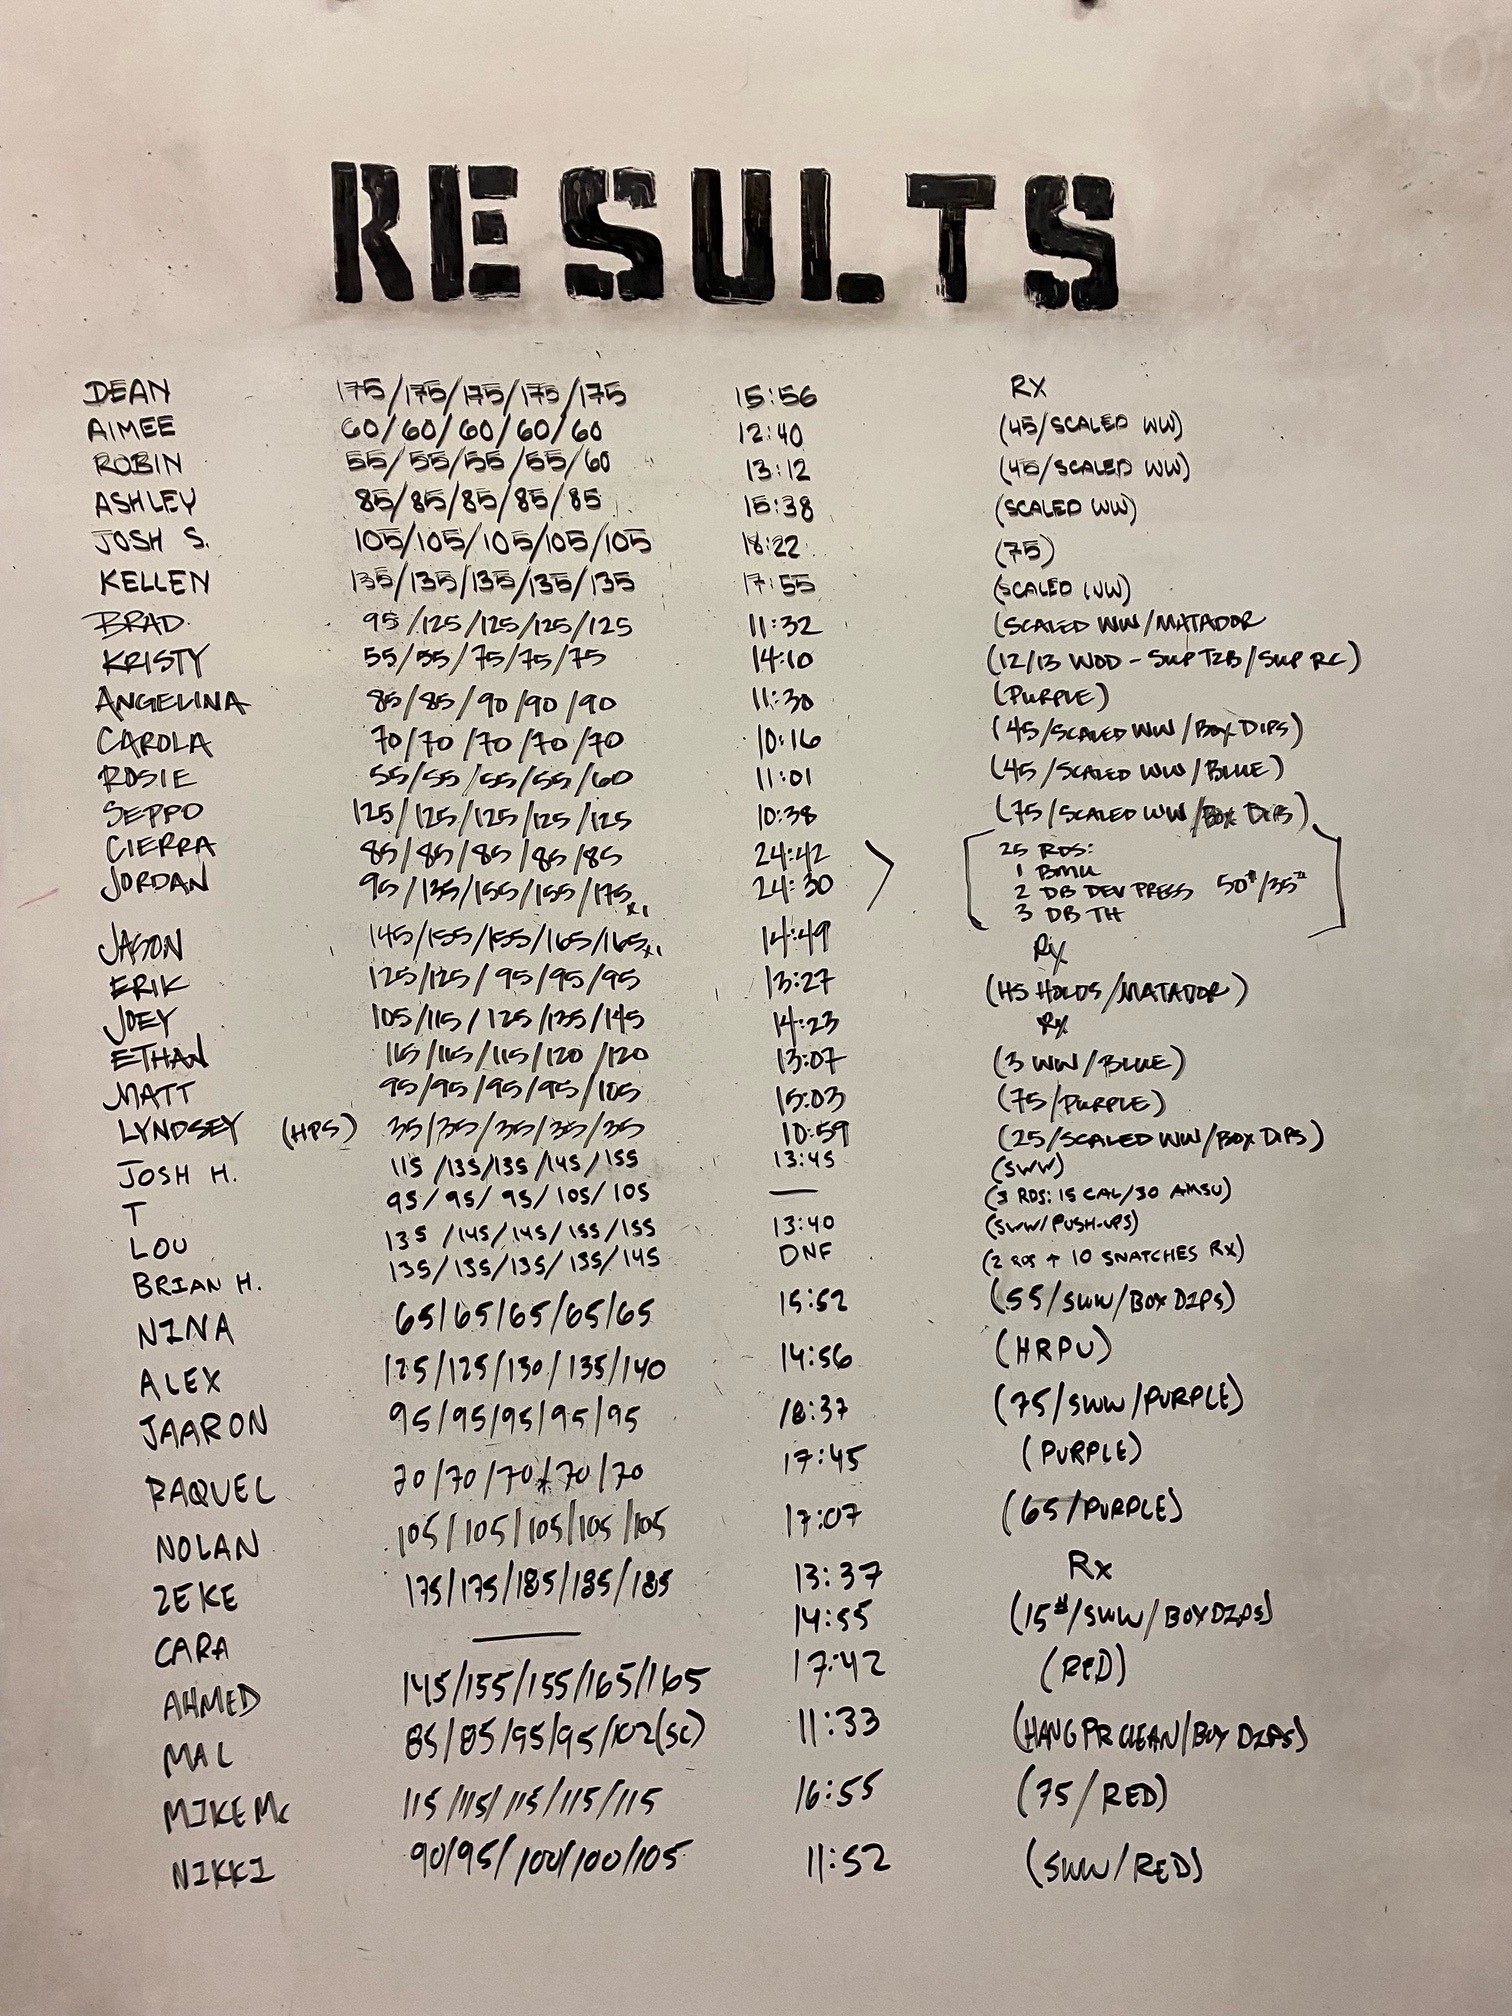 RESULTS
DEAN 175/175/175/175/175 15:56 RX
AIMEE 60/60/60/60/60 12:40 (45/SCALED WW)
ROBIN 55/55/55/55/60 13:12 (45/SCALED WW)
ASHLEY 85/85/85/85/85 15:38 (SCALED WW)
JOSH S. 105/105/105/105/105 18:22 (75)
KELLEN 135/135/135/135/135 17:55 (SCALED WW)
BRAD 95/125/125/125/125 11:32 (SCALED WW/MATADOR
KRISTY 55/55/75/75/75 14:10 (12/13 WOD - SUP T2B/SUP RC)
ANGELINA 85/85/90/90/90 11:30 (PURPLE)
CAROLA 70/70/70/70/70 10:16 (45/SCALED WW/BOX DIPS)
ROSIE 55/55/55/55/60 11:01 (45/SCALED WW/BLUE)
SEPPO 125/125/125/125/125 10:38 (75/SCALED WW/BOX DIPS)
CIERRA 85/85/85/85/85 24:42 25 RDS:
1 BMU
JORDAN 95/135/155/155/175x1 24:30 2 DB DEV PRESS 50#/35#
3 DB TH
JASON 145/155/155/165/165x1 14:49 RX
ERIK 125/125/95/95/95 13:27 (HS HOLDS/MATADOR)
JOEY 105/115/125/135/145 14:23 RX
ETHAN 115/115/115/120/120 13:07 (3 WW/BLUE)
MATT 95/95/95/95/105 15:03 (75/PURPLE)
LYNDSEY (HPS) 35/35/35/35/35 10:59 (25/SCALED WW/BOX DIPS)
JOSH H. 115/135/135/145/155 13:45 (SWW)
T 95/95/95/105/105 — (3 RDS: 15 CAL/30 AMSU)
LOU 135/145/145/155/155 13:40 (SWW/PUSH-UPS)
BRIAN H. 135/135/135/135/145 DNF (2 RDS + 10 SNATCHES RX)
NINA 65/65/65/65/65 15:52 (55/SWW/BOX DIPS)
ALEX 125/125/130/135/140 14:56 (HRPU)
JAARON 95/95/95/95/95 18:37 (75/SWW/PURPLE)
RAQUEL 70/70/70/70/70 17:45 (PURPLE)
NOLAN 105/105/105/105/105 17:07 (65/PURPLE)
ZEKE 175/175/185/185/185 13:37 Rx
CARA — 14:55 (15#/SWW/BOX DIPS)
AHMED 145/155/155/165/165 17:42 (RED)
MAL 85/85/95/95/102(SC) 11:33 (HANG PR CLEAN/BOX DIPS)
MIKE Mc 115/115/115/115/115 16:55 (75/RED)
NIKKI 90/95/100/100/105 11:52 (SWW/RED)